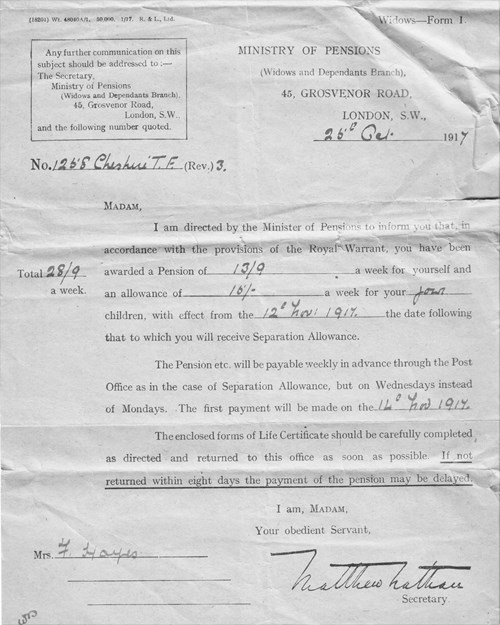 (18284) Wt. 48040/A/1. 50,000. 1/17. R. & L., Ltd.
Widows—Form 1.
Any further communication on this
subject should be addressed to :—
The Secretary,
Ministry of Pensions
(Widows and Dependants Branch),
45, Grosvenor Road,
London, S.W.,
and the following number quoted.
MINISTRY OF PENSIONS
(Widows and Dependants Branch),
45, GROSVENOR ROAD,
LONDON, S.W.,
Oct. 1917
No. Cheshire T.F. (Rev.) 3.
MADAM,
I am directed by the Minister of Pensions to inform you that, in
accordance with the provisions of the Royal Warrant, you have been
awarded a Pension of 13/9 a week for yourself and
an allowance of 15/- a week for your four
children, with effect from the 12th Nov: 1917. the date following
that to which you will receive Separation Allowance.
Total 28/9
a week.
The Pension etc. will be payable weekly in advance through the Post
Office as in the case of Separation Allowance, but on Wednesdays instead
of Mondays. The first payment will be made on the 14th Nov 1917.
The enclosed forms of Life Certificate should be carefully completed
as directed and returned to this office as soon as possible. If not
returned within eight days the payment of the pension may be delayed.
I am, MADAM,
Your obedient Servant,
Matthew Nathan
Secretary.
Mrs. F. Hayes